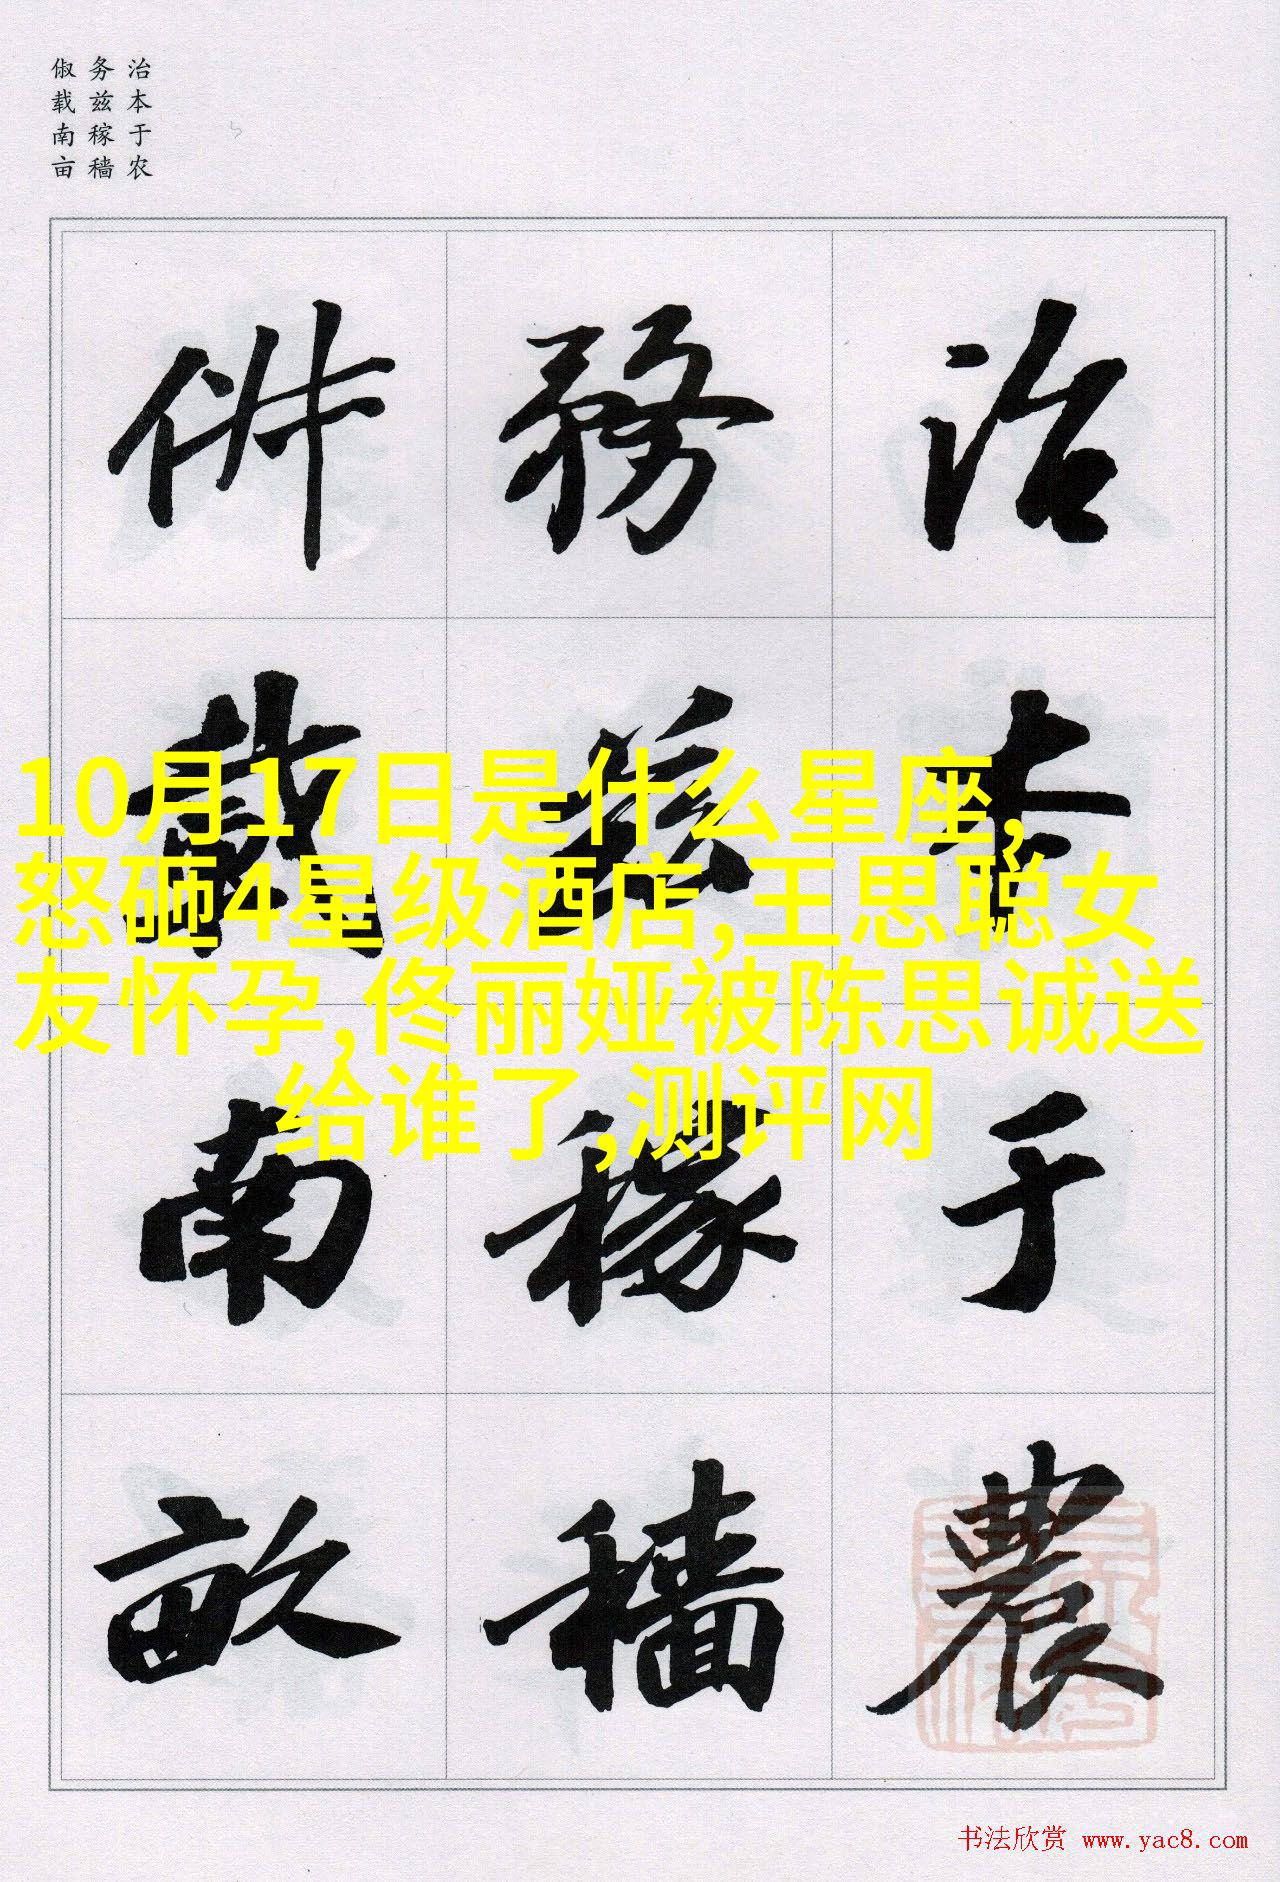 治本于农
务兹稼穑
俶载南亩
治本于農
務茲稼穡
俶載南畝
10月17日是什么星座,
怒砸4星级酒店,王思聪女
友怀孕,佟丽娅被陈思诚送
给谁了,测评网
书法欣赏 www.yac8.com